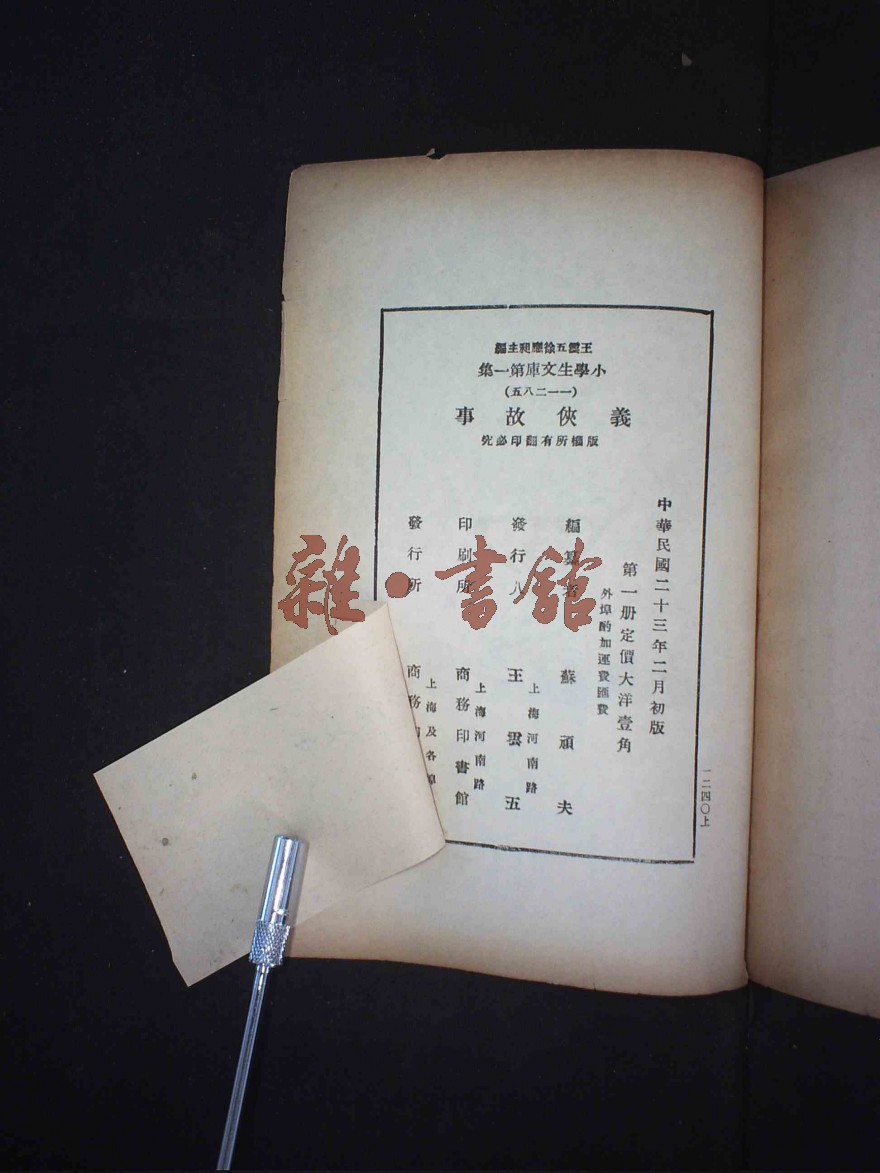 王雲五徐應昶主編
小學生文庫第一集
(一一二八五)
義俠故事
版權所有翻印必究
中華民國二十三年二月初版
第一册定價大洋壹角
外埠酌加運費匯費
編纂者 蘇頑夫
發行人 上海河南路 王雲五
印刷所 上海河南路 商務印書館
發行所 上海及各埠 商務
一二四〇上
雜·書館